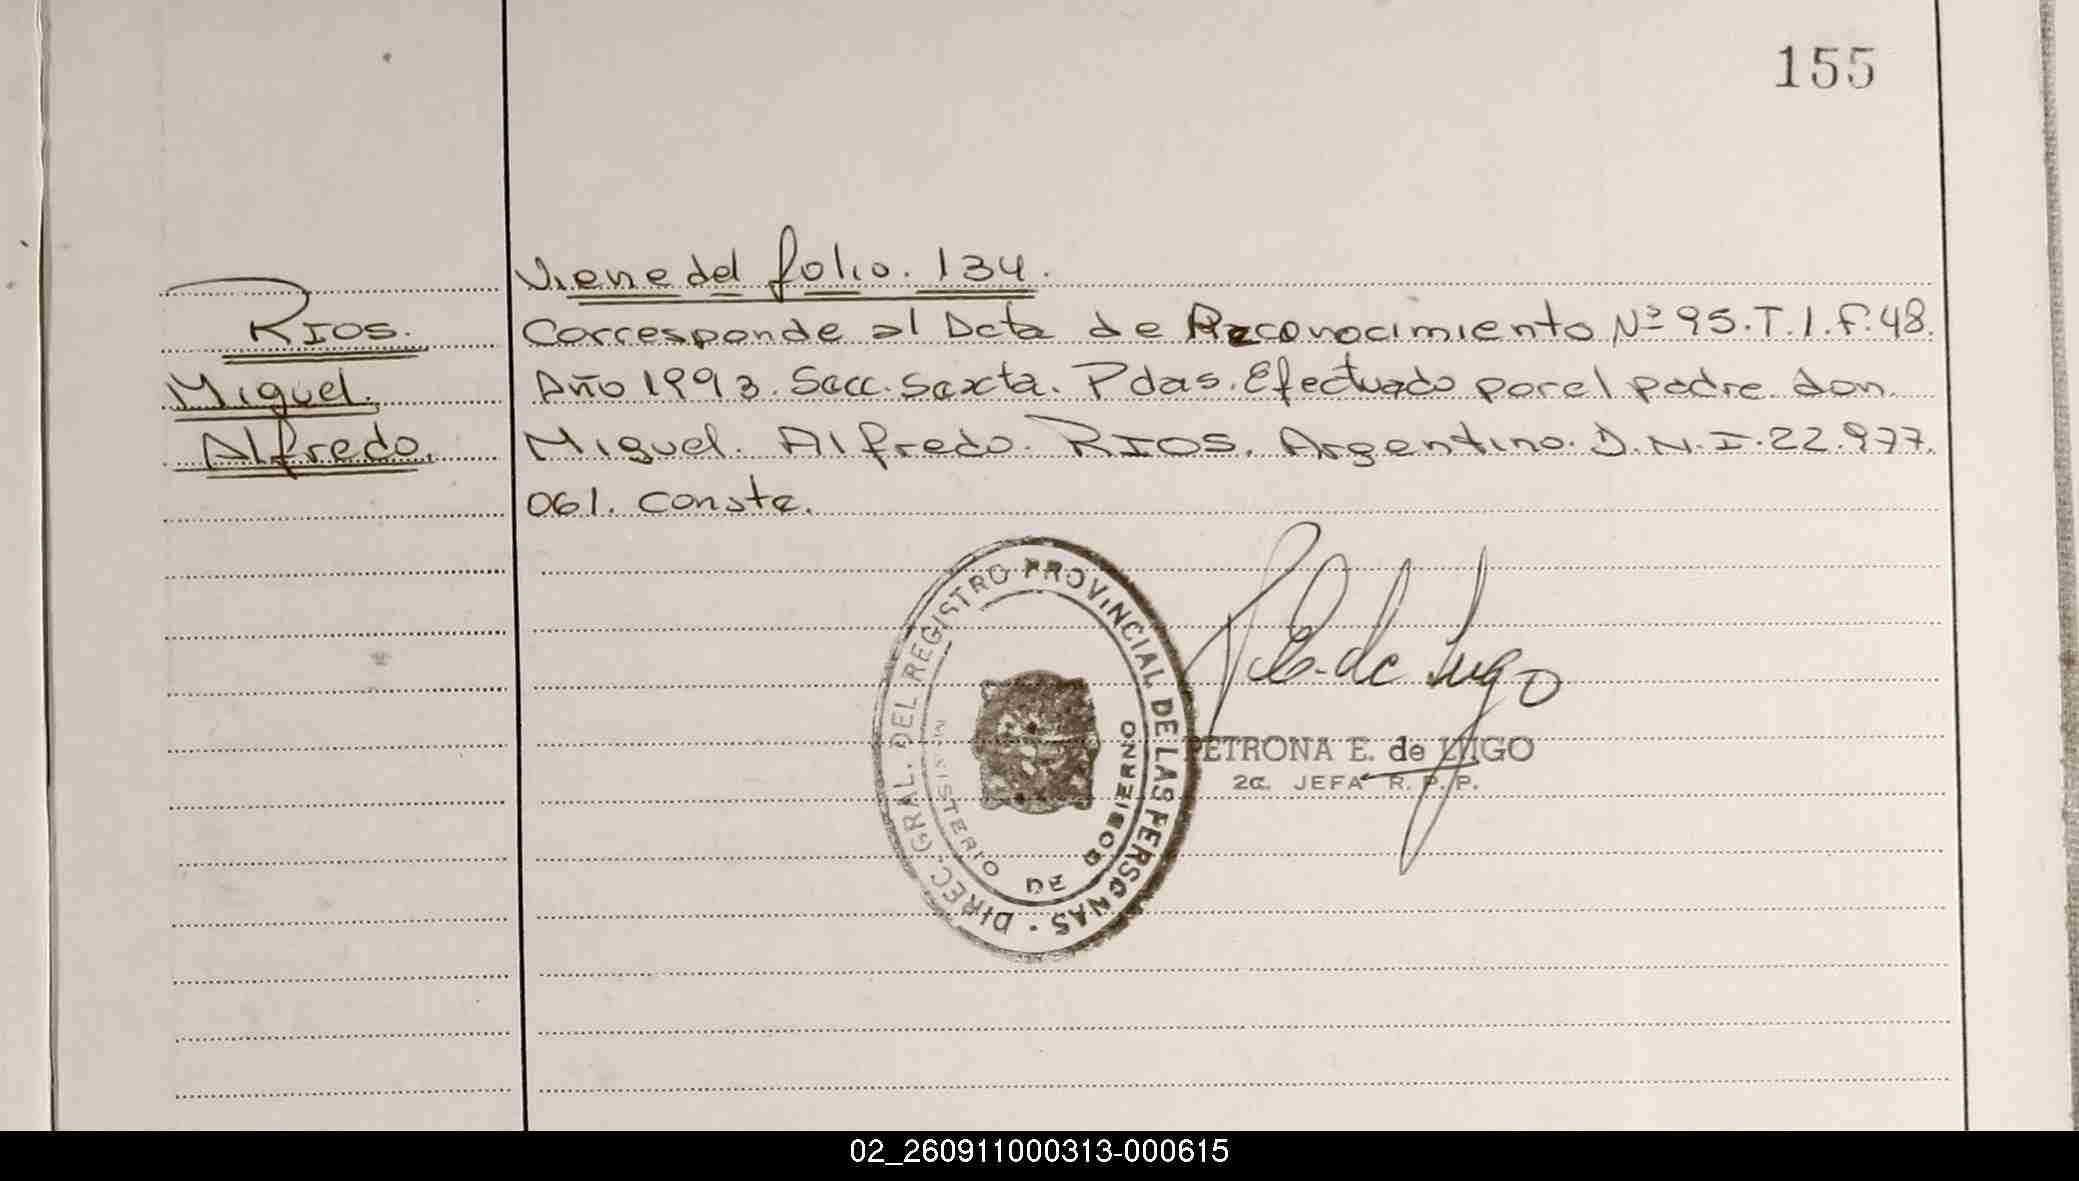 155
Viene del folio. 134.
RIOS.
Corresponde al Acta de Reconocimiento Nº 95. T. 1. F. 48.
Miguel.
Año 1993. Secc. Sexta. Pdas. Efectuado por el padre don
Alfredo.
Miguel. Alfredo. RIOS. Argentino. D.N.I. 22.977.
061. Conste.
DIREC. GRAL. DEL REGISTRO PROVINCIAL DE LAS PERSONAS
MINISTERIO DE GOBIERNO
P.E. de Lugo
PETRONA E. de LUGO
2a. JEFA R. P. P.
02_260911000313-000615